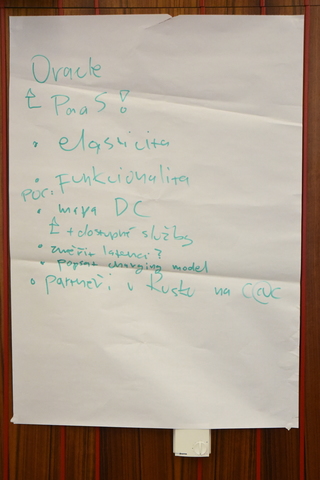 Oracle
↳ PaaS!
• elasticita
• Funkcionalita
POC:
• mapa DC
↳ + dostupné služby
• změřit latenci?
• popsat charging model
• partneři v Rusku na C@C